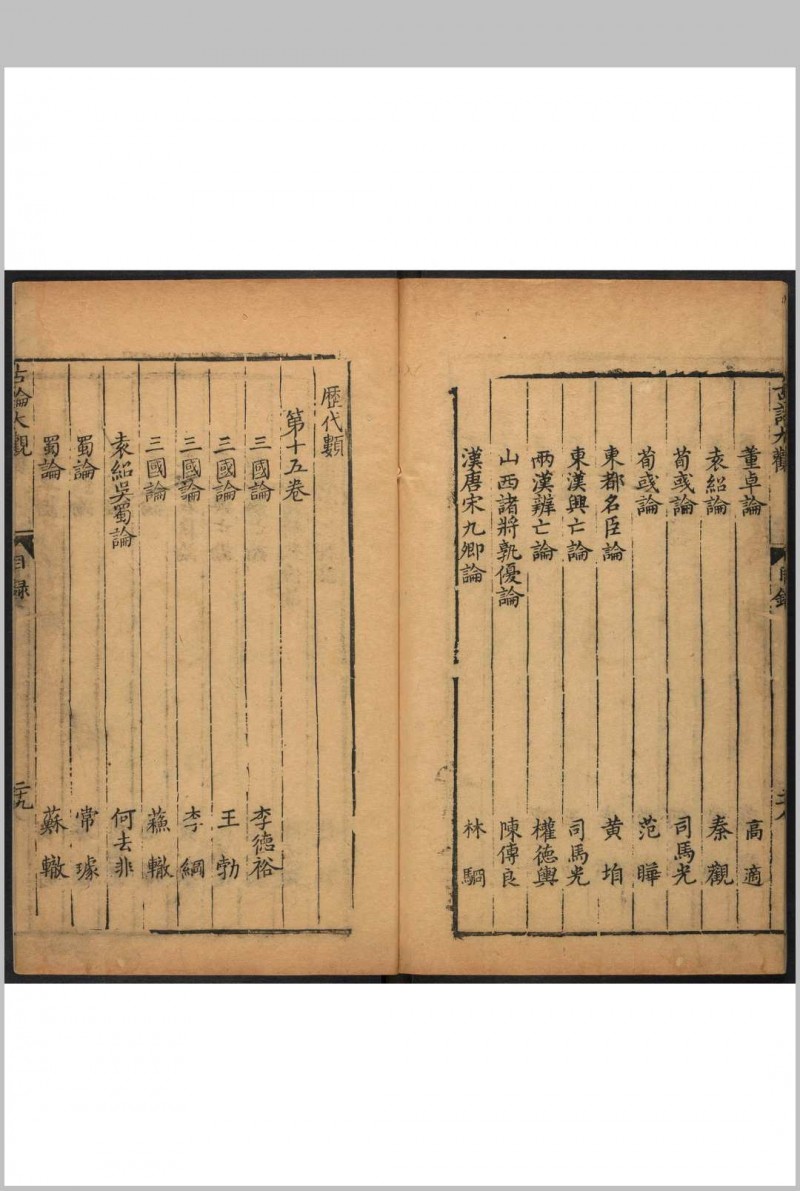 古論大觀 目錄 二十八
董卓論 高適
袁紹論 秦觀
荀彧論 司馬光
荀彧論 范曄
東都名臣論 黄垍
東漢興亡論 司馬光
兩漢辨亡論 權德輿
山西諸將孰優論 陳傅良
漢唐宋九卿論 林駧
歷代類
第十五卷
三國論 李德裕
三國論 王勃
三國論 李綱
三國論 蘓轍
袁紹吳蜀論 何去非
蜀論 常璩
蜀論 蘇轍
古論大觀 目録 二十九